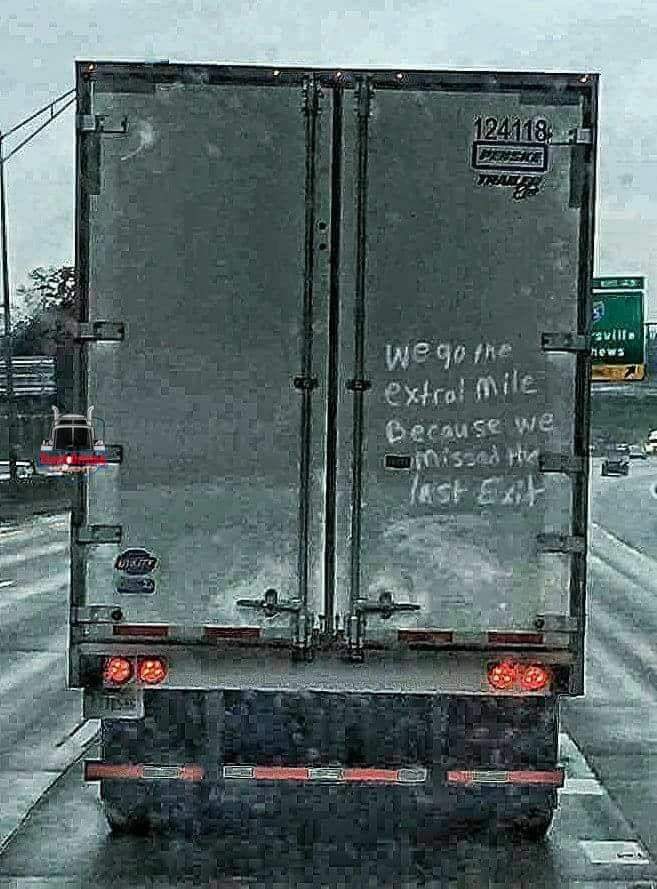 124118
PENSKE
TRAILER
We go the
extral mile
Because we
missed the
last Exit
UTILITY
sville
news